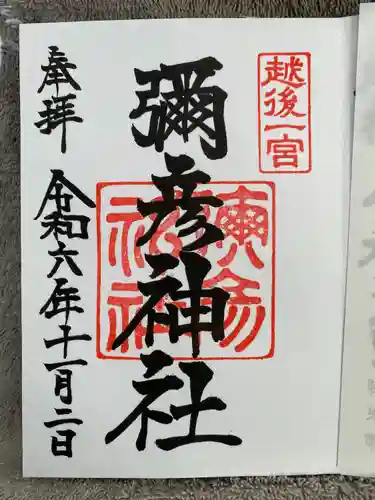 越後一宮
彌彦神社
彌彦神社
奉拝
令和六年十一月二日